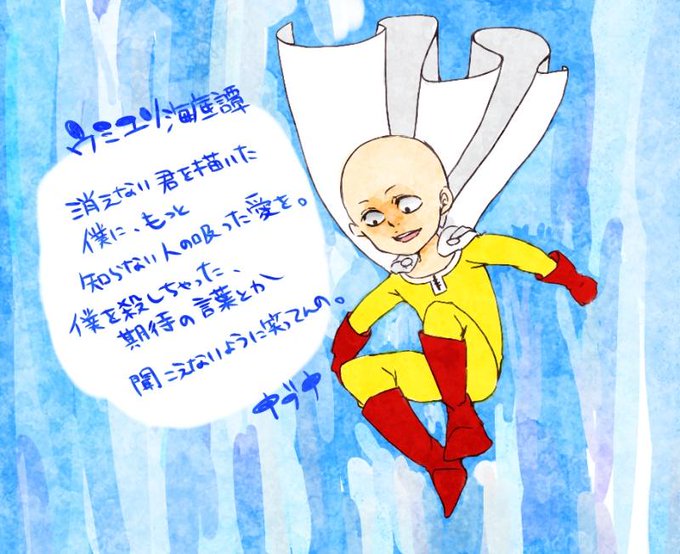 ウミユリ海底譚
消えない君を描いた
僕に、もっと
知らない人の吸った愛を。
僕を殺しちゃった、
期待の言葉とか
聞こえないように笑ってんの。